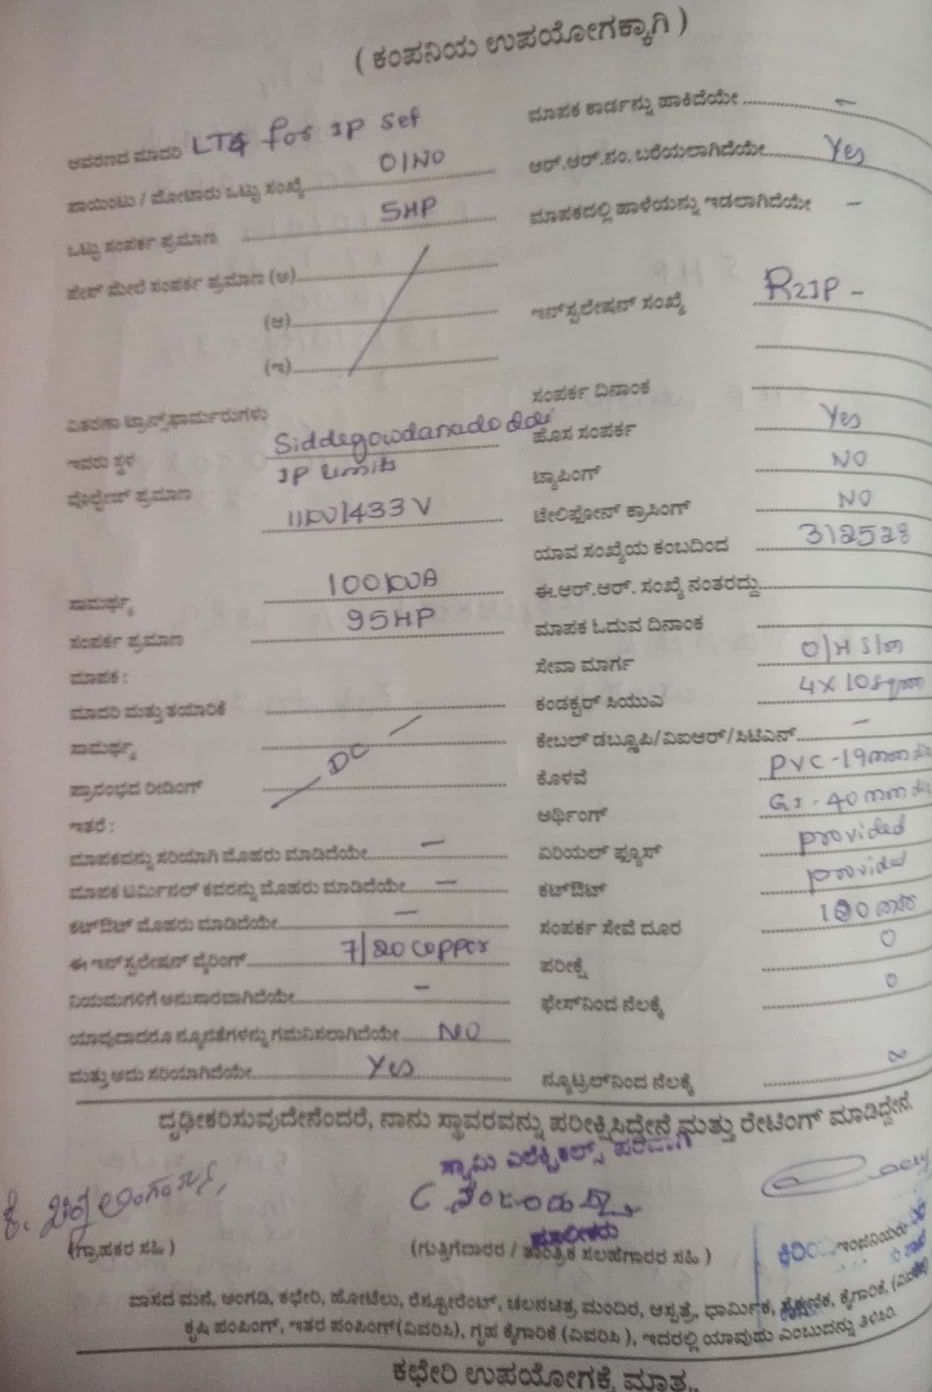 ( ಕಂಪನಿಯ ಉಪಯೋಗಕ್ಕಾಗಿ )
ಆವರಣದ ಮಾದರಿ LT4 for IP Set
ಪಾಯಿಂಟು / ಮೋಟಾರು ಒಟ್ಟು ಸಂಖ್ಯೆ 01No
ಒಟ್ಟು ಸಂಪರ್ಕ ಪ್ರಮಾಣ 5HP
ಫೇಸ್ ಮೇಲೆ ಸಂಪರ್ಕ ಪ್ರಮಾಣ (ಅ)
(ಆ)
(ಇ)
ವಿತರಣಾ ಟ್ರಾನ್ಸ್‌ಫಾರ್ಮರುಗಳು
ಇದರು ಸ್ಥಳ Siddegowdanadoddi
IP limits
ವೋಲ್ಟೇಜ್ ಪ್ರಮಾಣ 11KV/433 V
ಸಾಮರ್ಥ್ಯ 100KVA
ಸಂಪರ್ಕ ಪ್ರಮಾಣ 95HP
ಮಾಪಕ :
ಮಾದರಿ ಮತ್ತು ತಯಾರಿಕೆ
ಸಾಮರ್ಥ್ಯ — DC —
ಪ್ರಾರಂಭದ ರೀಡಿಂಗ್
ಇತರೆ :
ಮಾಪಕವನ್ನು ಸರಿಯಾಗಿ ಮೊಹರು ಮಾಡಿದೆಯೇ —
ಮಾಪಕ ಟರ್ಮಿನಲ್ ಕವರನ್ನು ಮೊಹರು ಮಾಡಿದೆಯೇ —
ಕಟ್‌ಔಟ್ ಮೊಹರು ಮಾಡಿದೆಯೇ —
ಈ ಇನ್‌ಸ್ಟಲೇಷನ್ ವೈರಿಂಗ್ 7/20 copper
ನಿಯಮಗಳಿಗೆ ಅನುಸಾರವಾಗಿದೆಯೇ -
ಯಾವುದಾದರೂ ನ್ಯೂನತೆಗಳನ್ನು ಗಮನಿಸಲಾಗಿದೆಯೇ NO
ಮತ್ತು ಅದು ಸರಿಯಾಗಿದೆಯೇ Yes
ಮಾಪಕ ಕಾರ್ಡನ್ನು ಹಾಕಿದೆಯೇ —
ಆರ್.ಆರ್.ನಂ. ಬರೆಯಲಾಗಿದೆಯೇ Yes
ಮಾಪಕದಲ್ಲಿ ಹಾಳೆಯನ್ನು ಇಡಲಾಗಿದೆಯೇ —
ಇನ್‌ಸ್ಟಲೇಷನ್ ಸಂಖ್ಯೆ R2IP -
ಸಂಪರ್ಕ ದಿನಾಂಕ
ಹೊಸ ಸಂಪರ್ಕ Yes
ಟ್ಯಾಪಿಂಗ್ NO
ಟೇಲಿಫೋನ್ ಕ್ರಾಸಿಂಗ್ NO
ಯಾವ ಸಂಖ್ಯೆಯ ಕಂಬದಿಂದ 312528
ಈ.ಆರ್.ಆರ್. ಸಂಖ್ಯೆ ನಂತರದ್ದು
ಮಾಪಕ ಓದುವ ದಿನಾಂಕ
ಸೇವಾ ಮಾರ್ಗ O/H S/m
ಕಂಡಕ್ಟರ್ ಸಿಯುಎ 4 x 10sqmm
ಕೇಬಲ್ ಡಬ್ಲೂಪಿ/ವಿಐಆರ್/ಸಿಟಿಎನ್ —
ಕೊಳವೆ PVC -19mm
ಅರ್ಥಿಂಗ್ GI - 40 mm
ಏರಿಯಲ್ ಫ್ಯೂಸ್ provided
ಕಟ್‌ಔಟ್ provided
ಸಂಪರ್ಕ ಸೇವೆ ದೂರ
ಪರೀಕ್ಷೆ 0
ಫೇಸ್‌ನಿಂದ ನೆಲಕ್ಕೆ 0
ನ್ಯೂಟ್ರಲ್‌ನಿಂದ ನೆಲಕ್ಕೆ ∞
ದೃಢೀಕರಿಸುವುದೇನೆಂದರೆ, ನಾನು ಸ್ಥಾವರವನ್ನು ಪರೀಕ್ಷಿಸಿದ್ದೇನೆ ಮತ್ತು ರೇಟಿಂಗ್ ಮಾಡಿದ್ದೇನೆ.
ಸ್ವಾಮಿ ಎಲೆಕ್ಟ್ರಿಕಲ್ಸ್ ಪರವಾಗಿ
ಮಾಲೀಕರು
(ಗ್ರಾಹಕರ ಸಹಿ )
(ಗುತ್ತಿಗೆದಾರರ / ತಾಂತ್ರಿಕ ಸಲಹೆಗಾರರ ಸಹಿ )
ಕಿರಿ ಇಂಜಿನಿಯರು
ವಾಸದ ಮನೆ, ಅಂಗಡಿ, ಕಛೇರಿ, ಹೋಟೆಲು, ರೆಸ್ಟೋರೆಂಟ್, ಚಲನಚಿತ್ರ ಮಂದಿರ, ಆಸ್ಪತ್ರೆ, ಧಾರ್ಮಿಕ, ಶೈಕ್ಷಣಿಕ, ಕೈಗಾರಿಕೆ,
ಕೃಷಿ ಪಂಪಿಂಗ್, ಇತರ ಪಂಪಿಂಗ್ (ವಿವರಿಸಿ), ಗೃಹ ಕೈಗಾರಿಕೆ (ವಿವರಿಸಿ ), ಇದರಲ್ಲಿ ಯಾವುದು ಎಂಬುದನ್ನು ತಿಳಿಸಿ.
ಕಛೇರಿ ಉಪಯೋಗಕ್ಕೆ ಮಾತ್ರ